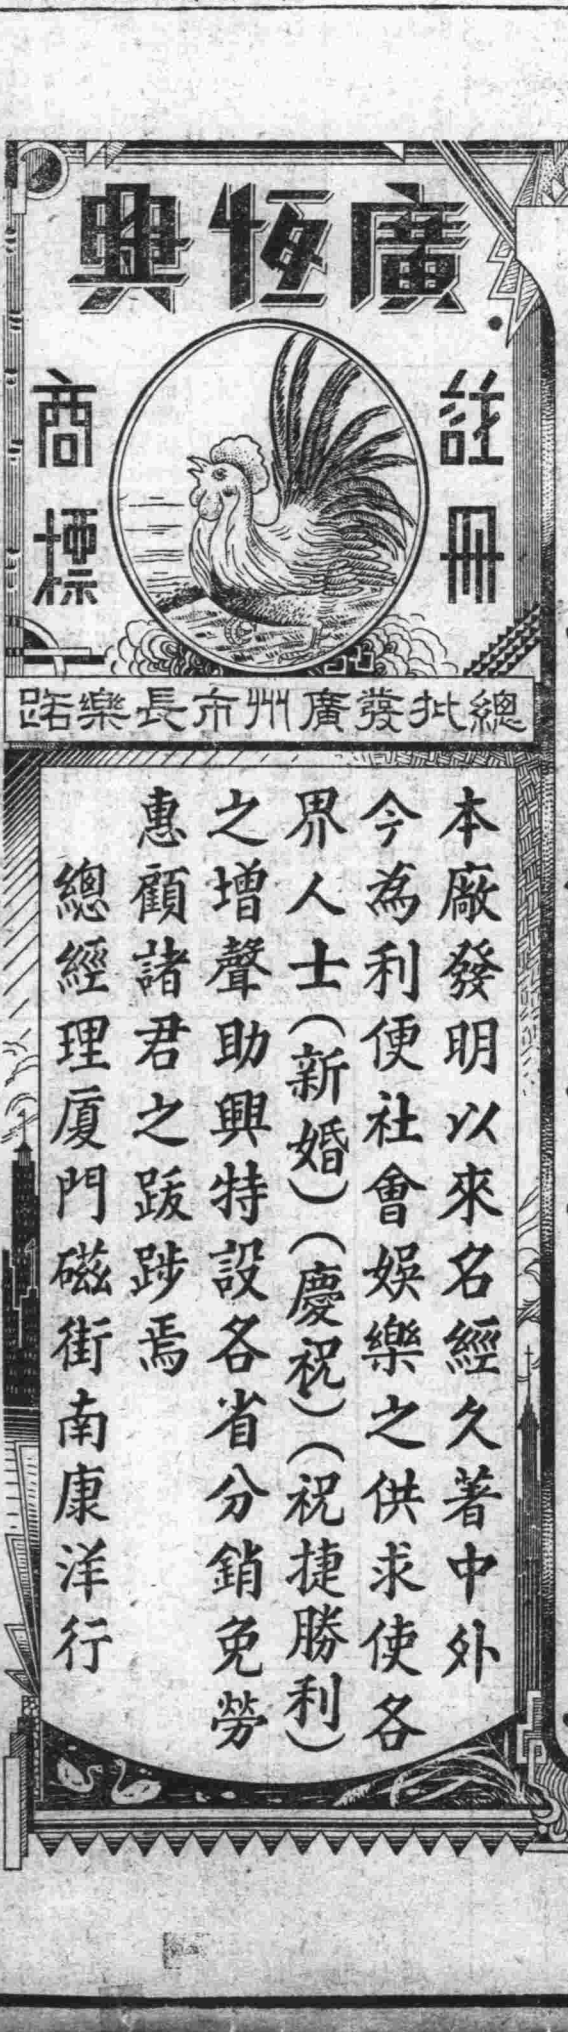 廣恆興
註冊
商標
總批發廣州市長樂路
本廠發明以來名經久著中外
今為利便社會娛樂之供求使各
界人士（新婚）（慶祝）（祝捷勝利）
之增聲助興特設各省分銷免勞
惠顧諸君之跋踄焉
總經理厦門磁街南康洋行